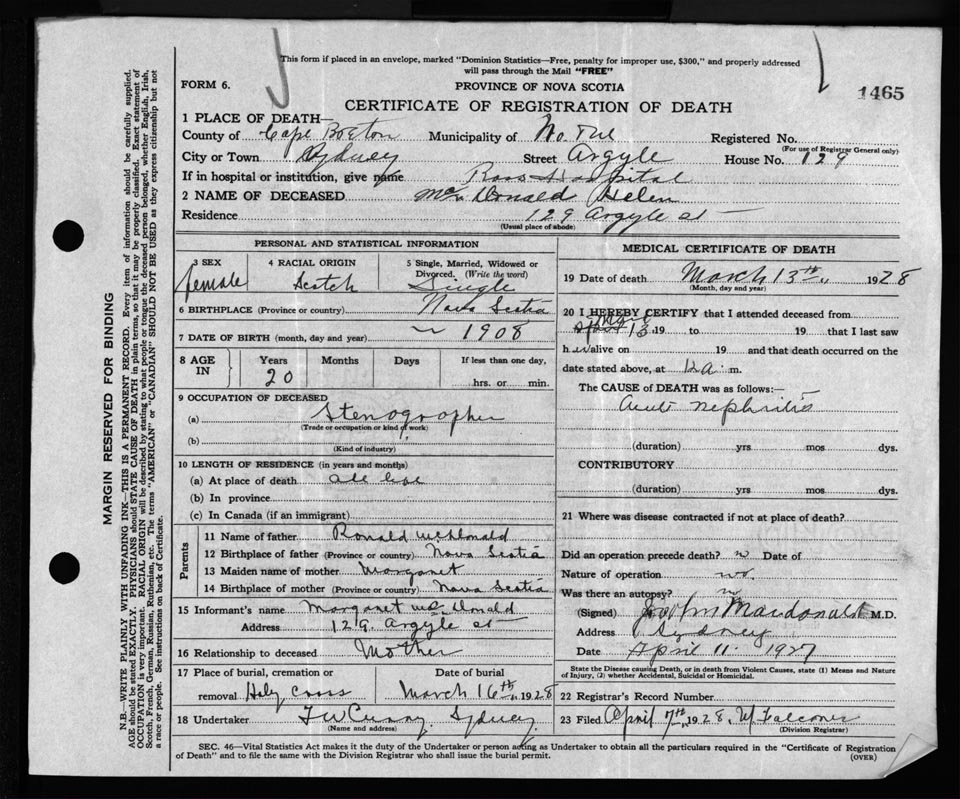 This form if placed in an envelope, marked "Dominion Statistics—Free, penalty for improper use, $300," and properly addressed
will pass through the Mail "FREE"
FORM 6.
PROVINCE OF NOVA SCOTIA
1465
CERTIFICATE OF REGISTRATION OF DEATH
1 PLACE OF DEATH—
County of Cape Breton Municipality of Registered No.
(For use of Registrar General only)
City or Town Sydney Street Argyle House No. 129
If in hospital or institution, give name Ross Hospital
2 NAME OF DECEASED McDonald Helen
Residence 129 Argyle St
(Usual place of abode)
PERSONAL AND STATISTICAL INFORMATION
3 SEX 4 RACIAL ORIGIN 5 Single, Married, Widowed or
Divorced. (Write the word)
female Scotch Single
6 BIRTHPLACE (Province or country) Nova Scotia
7 DATE OF BIRTH (month, day and year) 1908
8 AGE IN Years Months Days If less than one day,
20 hrs. or min.
9 OCCUPATION OF DECEASED
(a) Stenographer
(Trade or occupation or kind of work)
(b)
(Kind of industry)
10 LENGTH OF RESIDENCE (in years and months)
(a) At place of death all life
(b) In province
(c) In Canada (if an immigrant)
Parents
11 Name of father Ronald McDonald
12 Birthplace of father (Province or country) Nova Scotia
13 Maiden name of mother Margaret
14 Birthplace of mother (Province or country) Nova Scotia
15 Informant's name Margaret McDonald
Address 129 Argyle St
16 Relationship to deceased Mother
17 Place of burial, cremation or Date of burial
removal Holy Cross March 16th, 1928
18 Undertaker F W Curry, Sydney
(Name and address)
MEDICAL CERTIFICATE OF DEATH
19 Date of death March 13th, 1928
(Month, day and year)
20 I HEREBY CERTIFY that I attended deceased from
13 19 to 19 that I last saw
h er alive on 19 and that death occurred on the
date stated above, at 12 a. m.
The CAUSE of DEATH was as follows:—
Acute nephritis
(duration) yrs mos dys.
CONTRIBUTORY
(duration) yrs mos dys.
21 Where was disease contracted if not at place of death?
Did an operation precede death? Date of
Nature of operation no.
Was there an autopsy?
(Signed) Macdonald M.D.
Address Sydney
Date April 11. 1927
State the Disease causing Death, or in death from Violent Causes, state (1) Means and Nature
of Injury, (2) whether Accidental, Suicidal or Homicidal.
22 Registrar's Record Number
23 Filed April 7th, 1928, M Falconer
(Division Registrar)
SEC. 46—Vital Statistics Act makes it the duty of the Undertaker or person acting as Undertaker to obtain all the particulars required in the "Certificate of Registration
of Death" and to file the same with the Division Registrar who shall issue the burial permit.
(OVER)
MARGIN RESERVED FOR BINDING
N.B.—WRITE PLAINLY WITH UNFADING INK—THIS IS A PERMANENT RECORD. Every item of information should be carefully supplied.
AGE should be stated EXACTLY. PHYSICIANS should STATE CAUSE OF DEATH in plain terms, so that it may be properly classified. Exact statement of
OCCUPATION is very important. RACIAL ORIGIN will be described by stating to what people or tongue the deceased person belonged, whether English, Irish,
Scotch, French, German, Russian, Ruthenian, etc. The terms "AMERICAN" or "CANADIAN" SHOULD NOT BE USED as they express citizenship but not
a race or people. See instructions on back of Certificate.